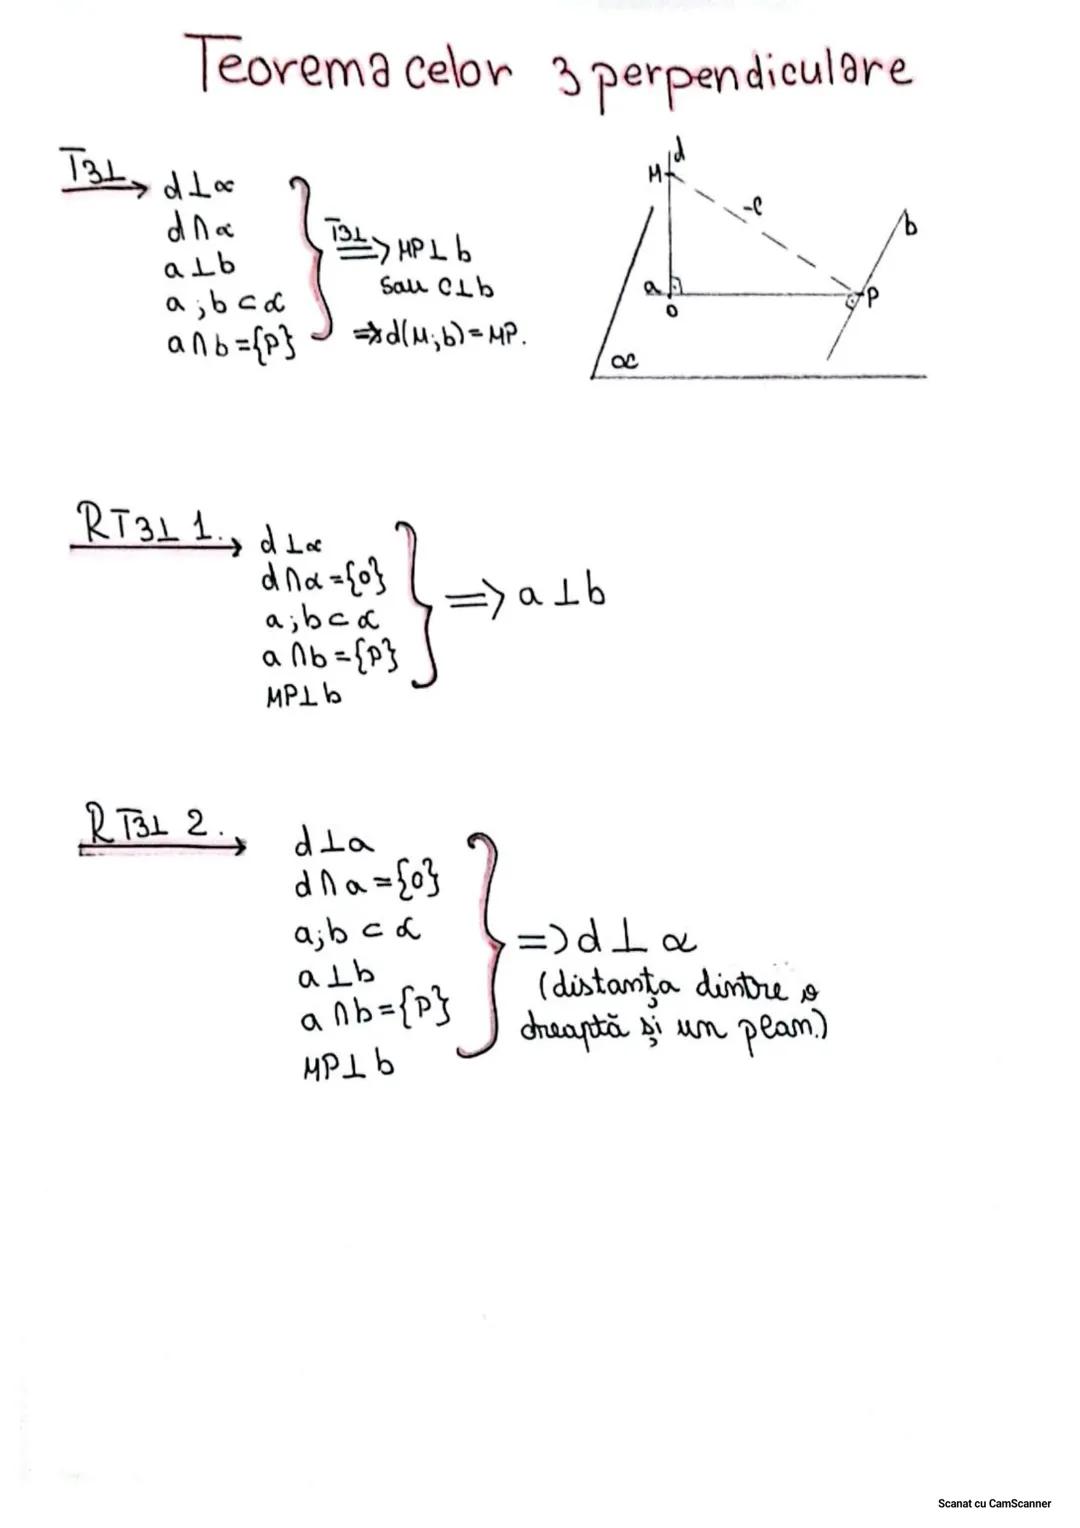 Teorema celor 3 perpendiculare
T3⊥
d⊥α
d∩α
a⊥b
a;b⊂α
a∩b={P}
T3⊥ => MP⊥b
sau c⊥b
=> d(M;b)=MP.
d
M
c
b
a
O
P
α
RT3⊥ 1.
d⊥α
d∩α={O}
a;b⊂α
a∩b={P}
MP⊥b
=> a⊥b
RT3⊥ 2.
d⊥a
d∩a={O}
a;b⊂α
a⊥b
a∩b={P}
MP⊥b
=> d⊥α
(distanța dintre o
dreaptă și un plan.)
Scanat cu CamScanner